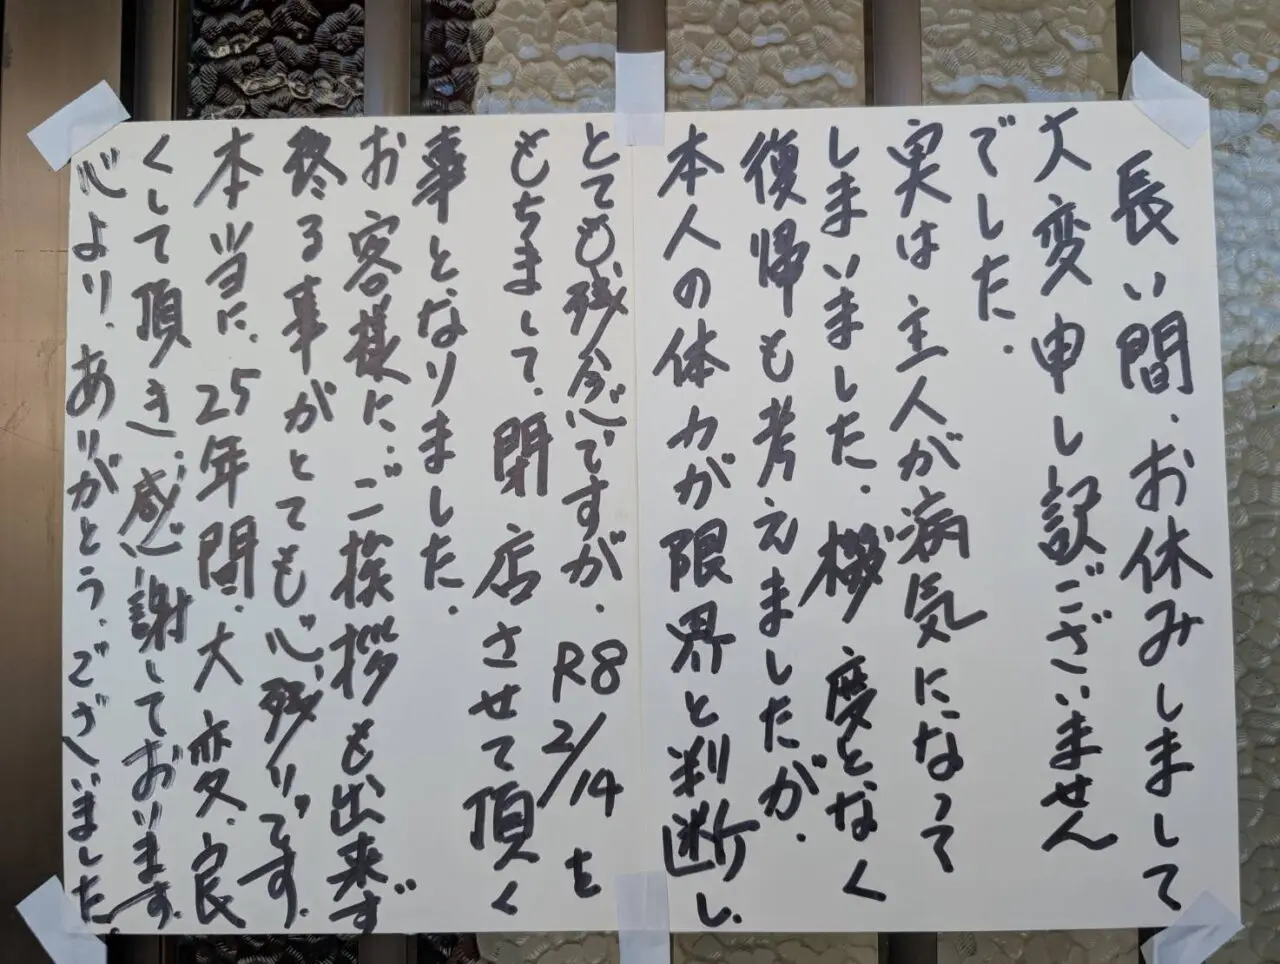 長い間、お休みしまして
大変申し訳ございません
でした。
実は主人が病気になって
しまいました。幾度となく
復帰も考えましたが、
本人の体力が限界と判断し、
とても残念ですが、R8 2/14を
もちまして、閉店させて頂く
事となりました。
お客様に、ご挨拶も出来ず
終る事がとても心残りです。
本当に、25年間、大変、良
くして頂き、感謝しております。
心より、ありがとう、ございました。